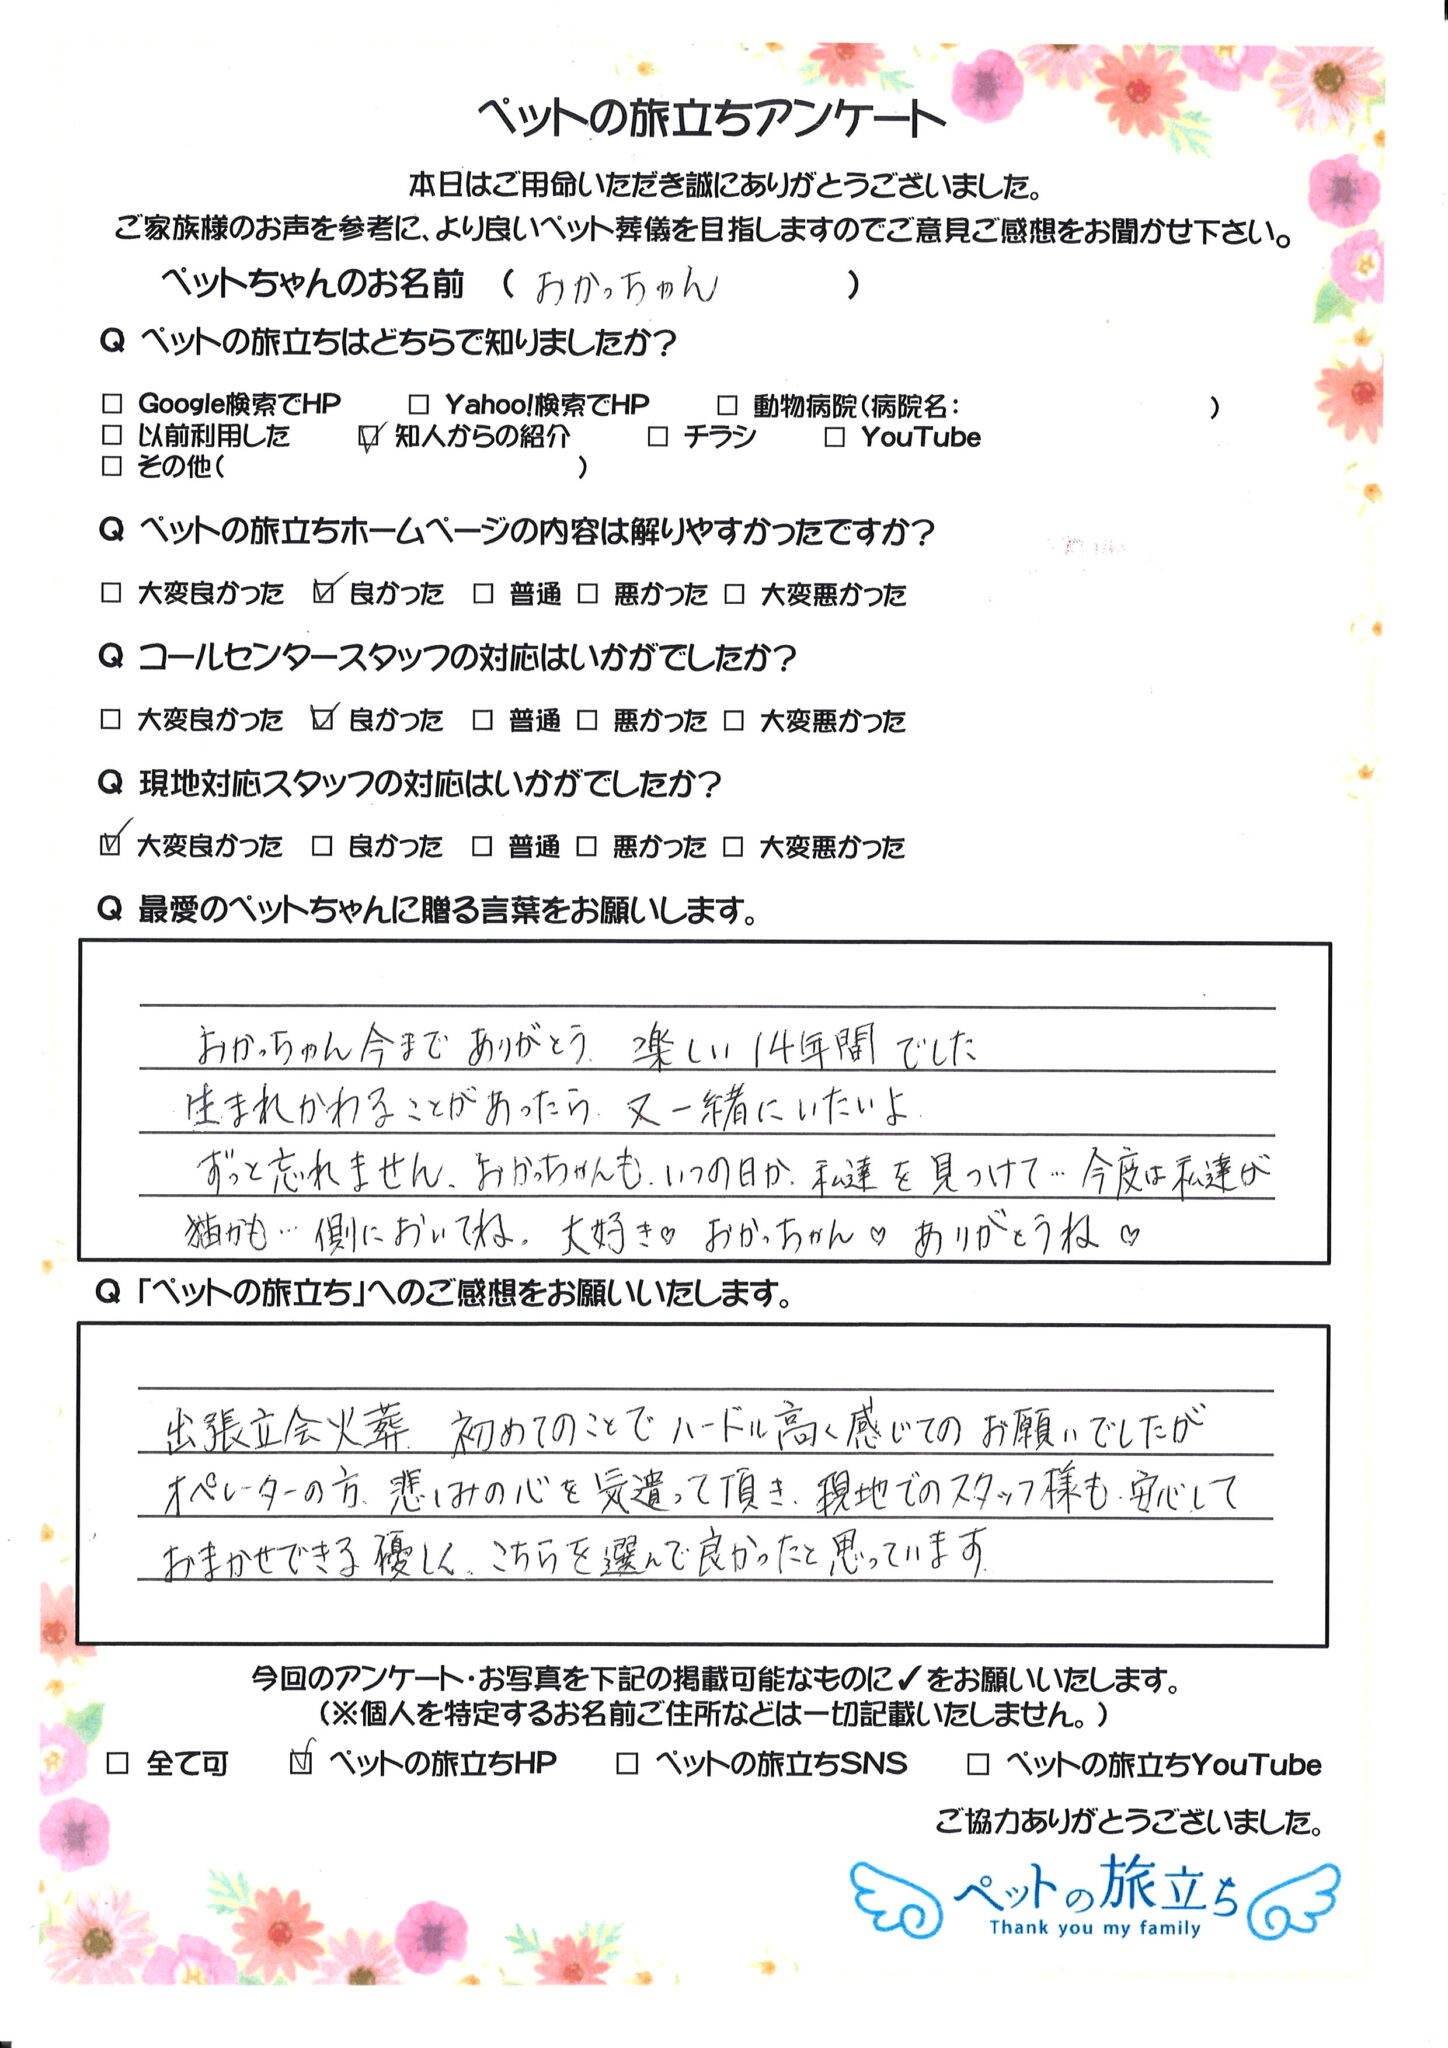 ペットの旅立ちアンケート
本日はご用命いただき誠にありがとうございました。
ご家族様のお声を参考に、より良いペット葬儀を目指しますのでご意見ご感想をお聞かせ下さい。
ペットちゃんのお名前 ( おかっちゃん )
Q ペットの旅立ちはどちらで知りましたか?
□ Google検索でHP □ Yahoo!検索でHP □ 動物病院(病院名: )
□ 以前利用した ☑ 知人からの紹介 □ チラシ □ YouTube
□ その他( )
Q ペットの旅立ちホームページの内容は解りやすかったですか?
□ 大変良かった ☑ 良かった □ 普通 □ 悪かった □ 大変悪かった
Q コールセンタースタッフの対応はいかがでしたか?
□ 大変良かった ☑ 良かった □ 普通 □ 悪かった □ 大変悪かった
Q 現地対応スタッフの対応はいかがでしたか?
☑ 大変良かった □ 良かった □ 普通 □ 悪かった □ 大変悪かった
Q 最愛のペットちゃんに贈る言葉をお願いします。
おかっちゃん今までありがとう、楽しい14年間でした
生まれかわることがあったら、又一緒にいたいよ
ずっと忘れません、おかっちゃんも、いつの日か、私達を見つけて…今度は私達が
猫かも…側においてね。大好き♡おかっちゃん♡ありがとうね♡
Q 「ペットの旅立ち」へのご感想をお願いいたします。
出張立会火葬、初めてのことでハードル高く感じてのお願いでしたが
オペレーターの方、悲しみの心を気遣って頂き、現地でのスタッフ様も、安心して
おまかせできる優しく、こちらを選んで良かったと思っています。
今回のアンケート・お写真を下記の掲載可能なものに✓をお願いいたします。
(※個人を特定するお名前ご住所などは一切記載いたしません。)
□ 全て可 ☑ ペットの旅立ちHP □ ペットの旅立ちSNS □ ペットの旅立ちYouTube
ご協力ありがとうございました。
ペットの旅立ち
Thank you my family